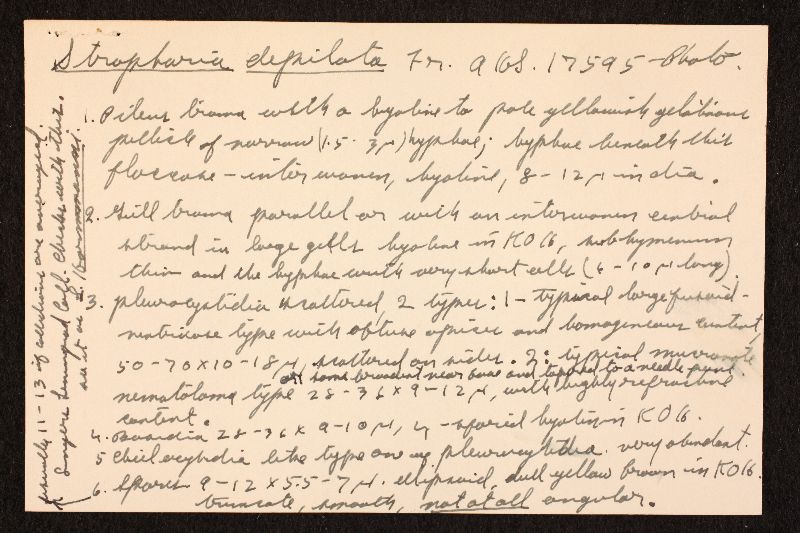 Stropharia depilata Fr. AHS. 17595 - Photo.
1. Pileus trama with a hyaline to pale yellowish gelatinous
pellicle of narrow (1.5-3 µ) hyphae; hyphae beneath this
floccose - interwoven, hyaline, 8-12 µ in dia.
2. Gill trama parallel or with an interwoven central
strand in large gills hyaline in KOH, subhymenium
thin and the hyphae with very short cells (6-10 µ long).
3. pleurocystidia scattered, 2 types: 1- typical large fusoid-
ventricose type with obtuse apices and homogeneous content,
50-70 x 10-18 µ, scattered on sides. 2: typical mucronate
or some broadest near base and tapered to a needle point
nematoloma type 28-36 x 9-12 µ, with highly refractive
content.
4. Basidia 28-36 x 9-10 µ, 4-spored hyaline in KOH.
5 Cheilocystidia like type one of pleurocystidia. very abundant.
6. Spores 9-12 x 5.5-7 µ. ellipsoid, dull yellow brown in KOH.
truncate, smooth, not at all angular.
usually 11-13 if collections are averaged.
Singer's Leningrad Coll. checks with this.
as S. Hornemannii.